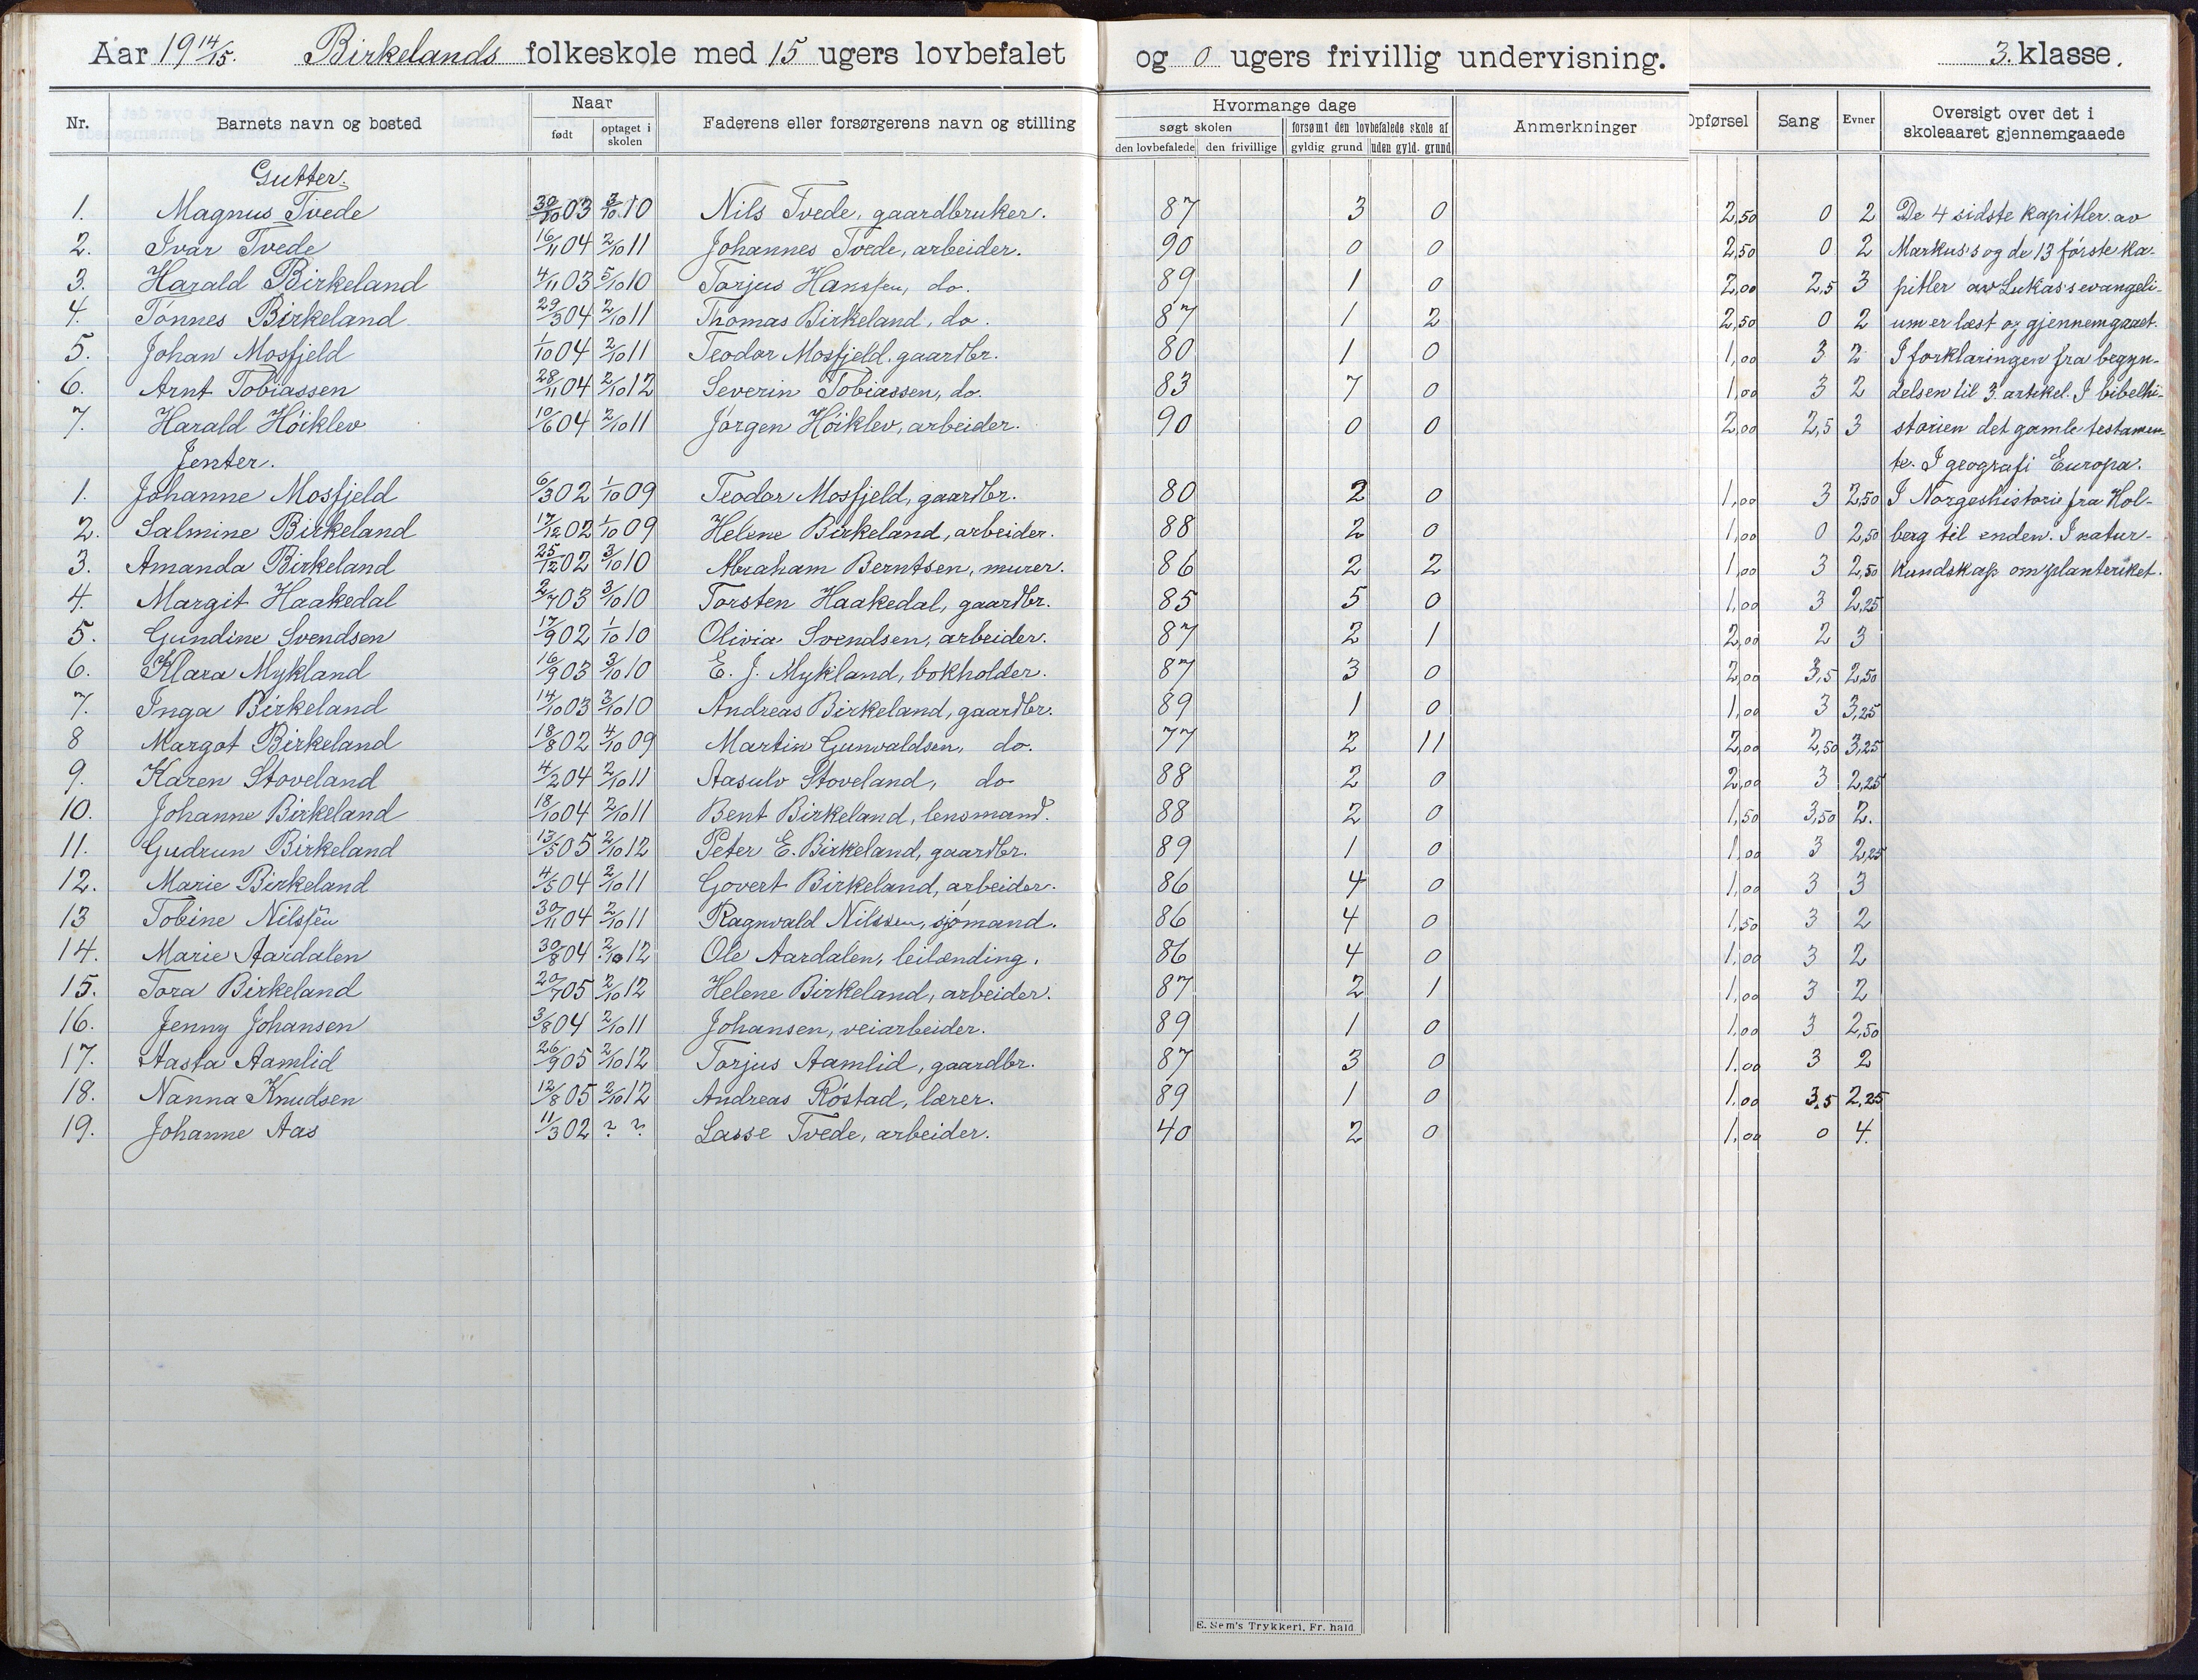 Aar 19 14/15. Birkelands folkeskole med 15 ugers lovbefalet og 0 ugers frivillig undervisning. 3. klasse.
Nr. Barnets navn og bosted Naar født optaget i skolen Faderens eller forsørgerens navn og stilling Hvormange dage søgt skolen den lovbefalede den frivillige forsømt den lovbefalede skole af gyldig grund uden gyld. grund Anmerkninger Opførsel Sang Evner Oversigt over det i skoleaaret gjennemgaaede
Gutter.
1. Magnus Tvede 30/10 03 3/10 10 Nils Tvede, gaardbruker. 87 3 0 2,50 0 2 De 4 sidste kapitler av
2. Ivar Tvede 16/11 04 2/10 11 Johannes Tvede, arbeider. 90 0 0 2,50 0 2 Markus's og de 13 første ka-
3. Harald Birkeland 4/11 03 5/10 10 Torjus Hanssen, do. 89 1 0 2,00 2,5 3 pitler av Lukas's evangeli-
4. Tønnes Birkeland 29/3 04 2/10 11 Thomas Birkeland, do. 87 1 2 2,50 0 2 um er læst og gjennemgaaet.
5. Johan Mosfjeld 1/10 04 2/10 11 Teodor Mosfjeld, gaardbr. 80 1 0 1,00 3 2 I forklaringen fra begyn-
6. Arnt Tobiassen 28/11 04 2/10 12 Severin Tobiassen, do. 83 7 0 1,00 3 2 delsen til 3. artikel. I bibelhi-
7. Harald Høiklev 10/6 04 2/10 11 Jørgen Høiklev, arbeider. 90 0 0 2,00 2,5 3 storien det gamle testamen-
Jenter. te. I geografi Europa.
1. Johanne Mosfjeld 6/3 02 1/10 09 Teodor Mosfjeld, gaardbr. 80 2 0 1,00 3 2,50 I Norgeshistorie fra Hol-
2. Salmine Birkeland 17/12 02 1/10 09 Helene Birkeland, arbeider. 88 2 0 1,00 0 2,50 berg til enden. I natur-
3. Amanda Birkeland 25/12 02 3/10 10 Abraham Berntsen, murer. 86 2 2 1,00 3 2,50 kundskap om planteriket.
4. Margit Haakedal 2/7 03 3/10 10 Torsten Haakedal, gaardbr. 85 5 0 1,00 3 2,25
5. Gundine Svendsen 17/9 02 1/10 10 Olivia Svendsen, arbeider. 87 2 1 2,00 2 3
6. Klara Mykland 16/9 03 3/10 10 E. J. Mykland, bokholder. 87 3 0 2,00 3,5 2,50
7. Inga Birkeland 14/10 03 3/10 10 Andreas Birkeland, gaardbr. 89 1 0 1,00 3 3,25
8 Margot Birkeland 18/8 02 4/10 09 Martin Gunvaldsen, do. 77 2 11 2,00 2,50 3,25
9. Karen Stoveland 4/2 04 2/10 11 Aasulv Stoveland, do 88 2 0 2,00 3 2,25
10. Johanne Birkeland 18/10 04 2/10 11 Bent Birkeland, lensmand. 88 2 0 1,50 3,50 2.
11. Gudrun Birkeland 13/5 05 2/10 12 Peter E. Birkeland, gaardbr. 89 1 0 1,00 3 2,25
12. Marie Birkeland 4/5 04 2/10 11 Govert Birkeland, arbeider. 86 4 0 1,00 3 3
13 Tobine Nilssen 30/11 04 2/10 11 Ragnvald Nilssen, sjømand. 86 4 0 1,50 3 2
14. Marie Aardalen 30/8 04 2/10 12 Ole Aardalen, leilænding. 86 4 0 1,00 3 2
15. Tora Birkeland 20/7 05 2/10 12 Helene Birkeland, arbeider. 87 2 1 1,00 3 2
16. Jenny Johansen 3/8 04 2/10 11 Johansen, veiarbeider. 89 1 0 1,00 3 2,50
17. Aasta Aamlid 26/9 05 2/10 12 Torjus Aamlid, gaardbr. 87 3 0 1,00 3 2
18. Nanna Knudsen 12/8 05 2/10 12 Andreas Røstad, lærer. 89 1 0 1,00 3,5 2,25
19. Johanne Aas 11/3 02 ? ? Lasse Tvede, arbeider. 40 2 0 1,00 0 4.
E. Sem's Trykkeri, Fr.hald